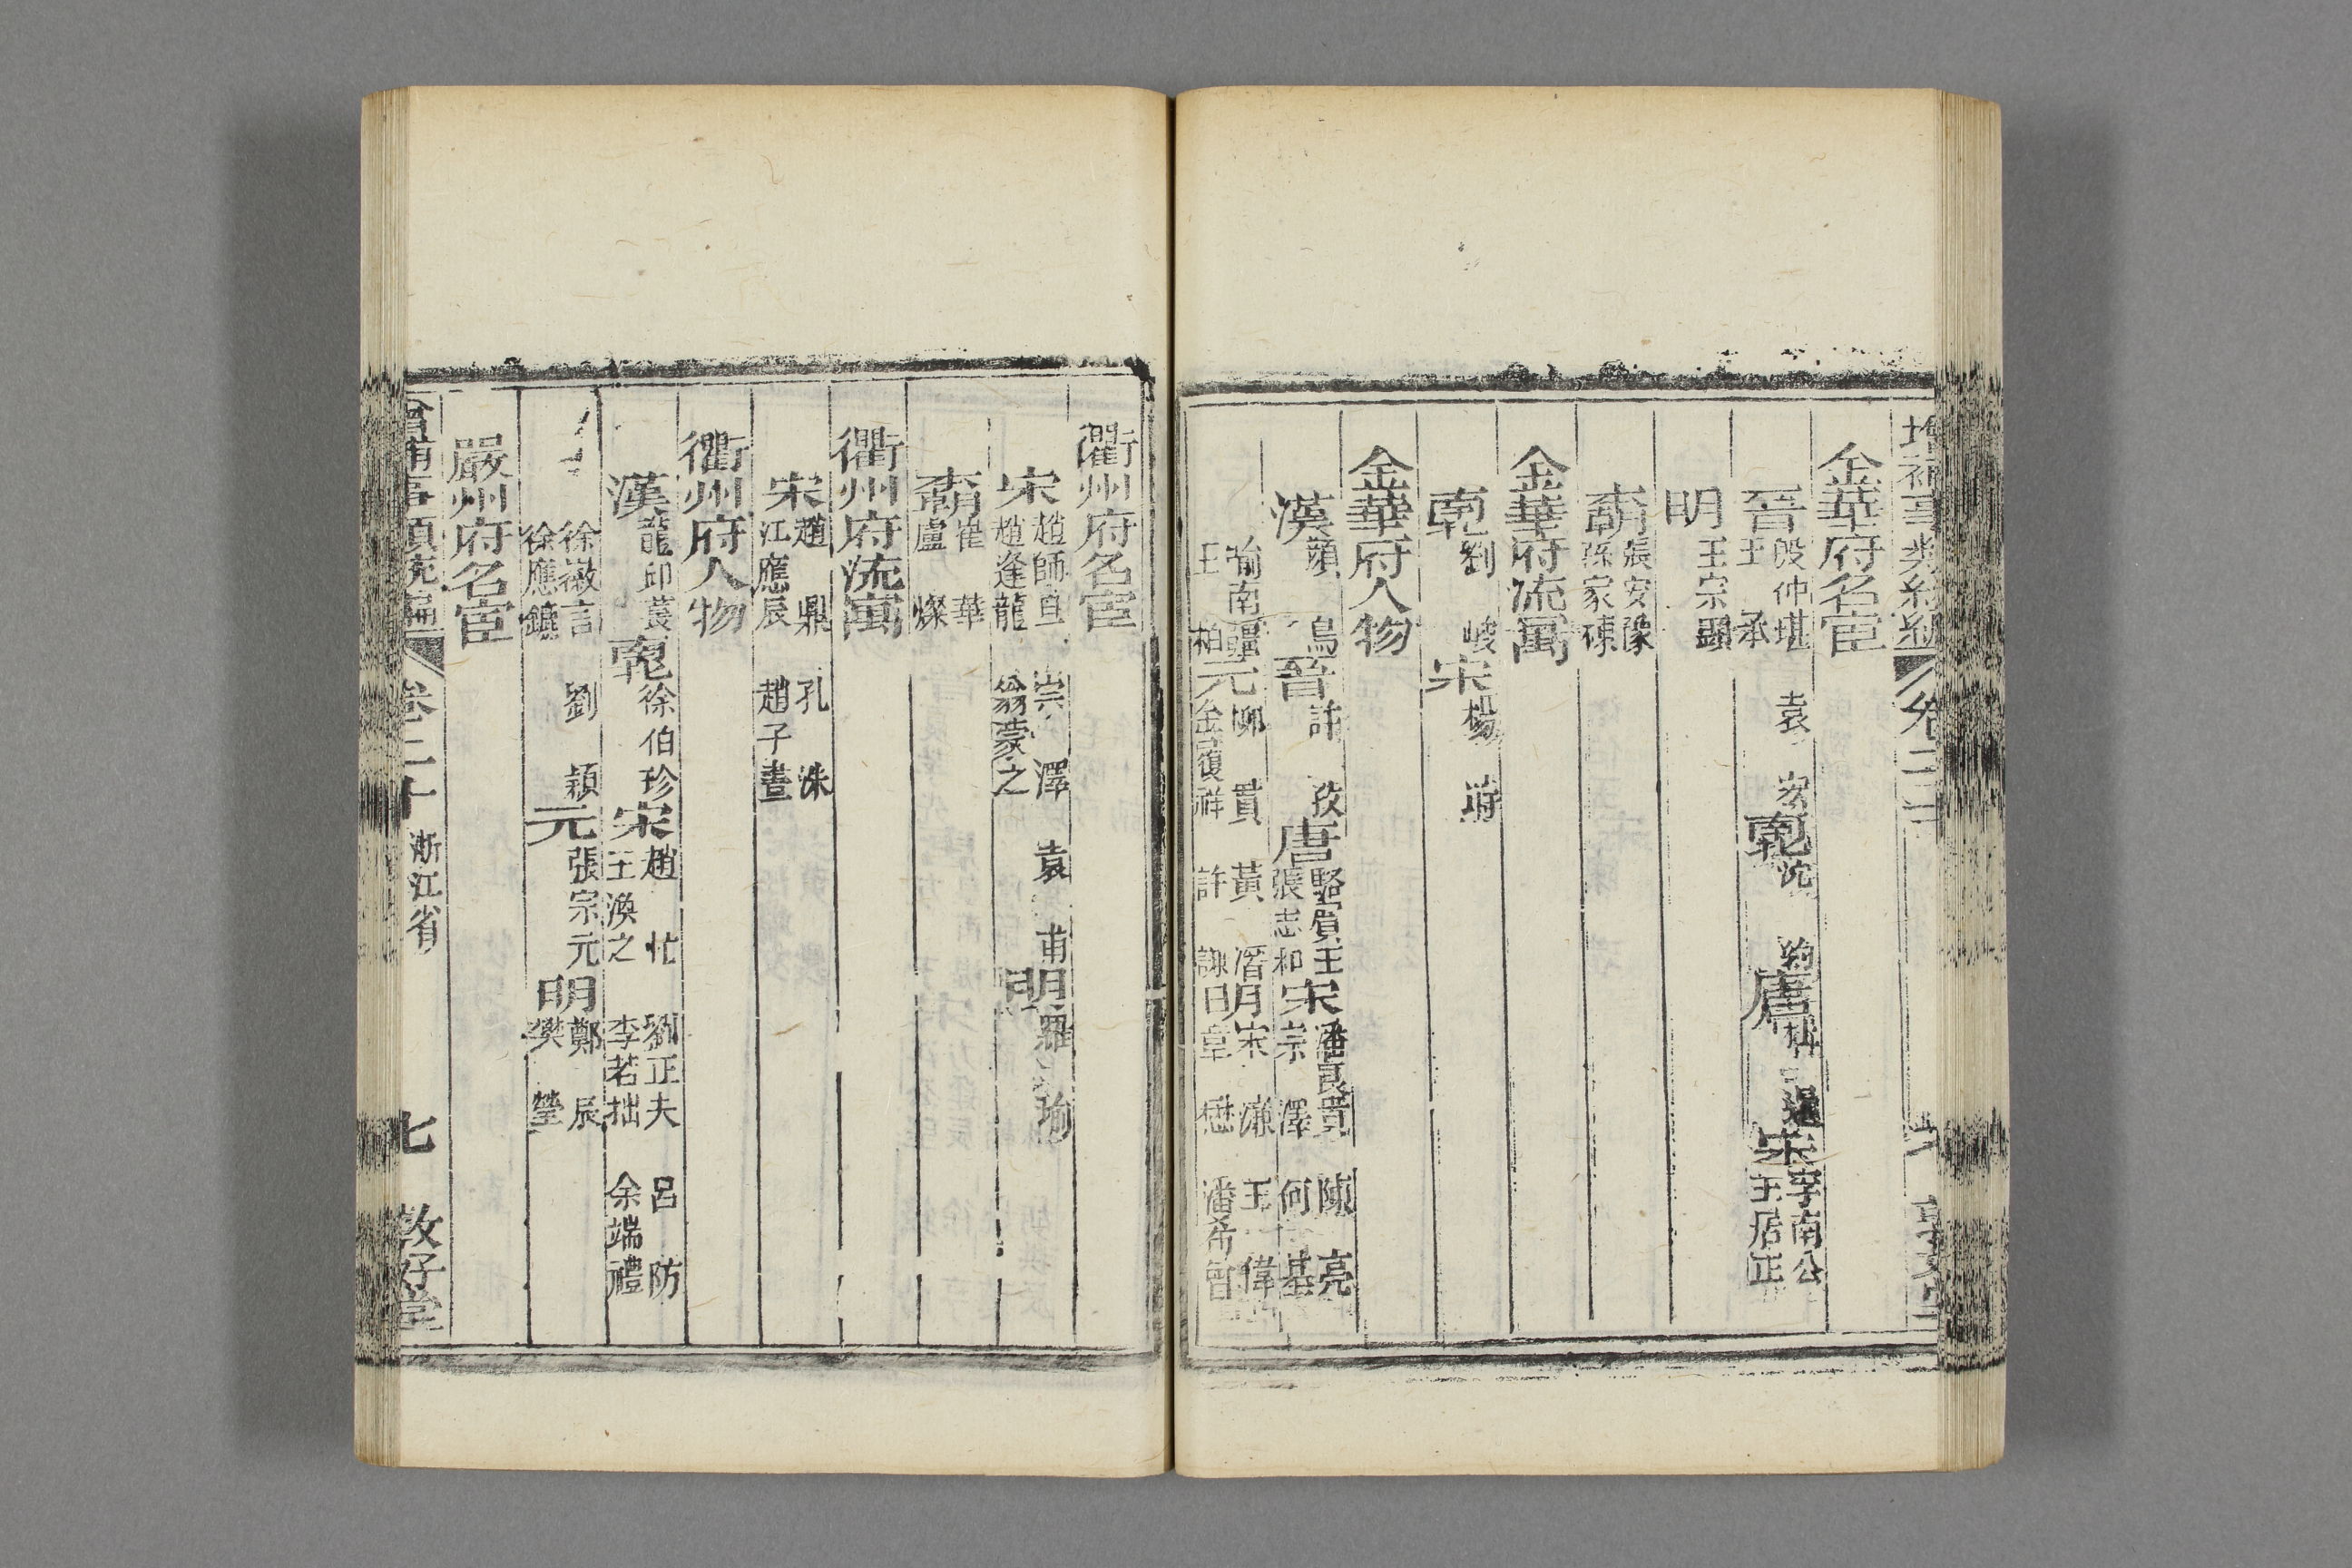 增補事類統編 卷二十
金華府名宦
晉 殷仲堪 王承 袁宏 沈約 唐 宋 李南公 王居正
明 王宗顯
張安豫 孫家棟
金華府流寓
劉峻 宋 楊時
金華府人物
漢 顏烏 晉 許孜 唐 駱賓王 張志和 宋 潘良貴 宗澤 陳亮 何基
喻南疆 王柏 元 柳貫 金履祥 黃溍 許謙 明 宋濂 章懋 王偉 潘希曾
衢州府名宦
宋 趙師旦 趙逢龍 崇澤 翁蒙之 袁甫 明 羅瑜
崔華 盧燦
衢州府流寓
宋 趙鼎 江應辰 孔洙 趙子晝
衢州府人物
漢 龍邱萇 徐伯珍 宋 趙忙 王渙之 劉正夫 李若拙 呂防 余端禮
徐徽言 徐應鑣 劉穎 元 張宗元 明 鄭辰 樊瑩
嚴州府名宦
卷二十 浙江省 七 敦好堂